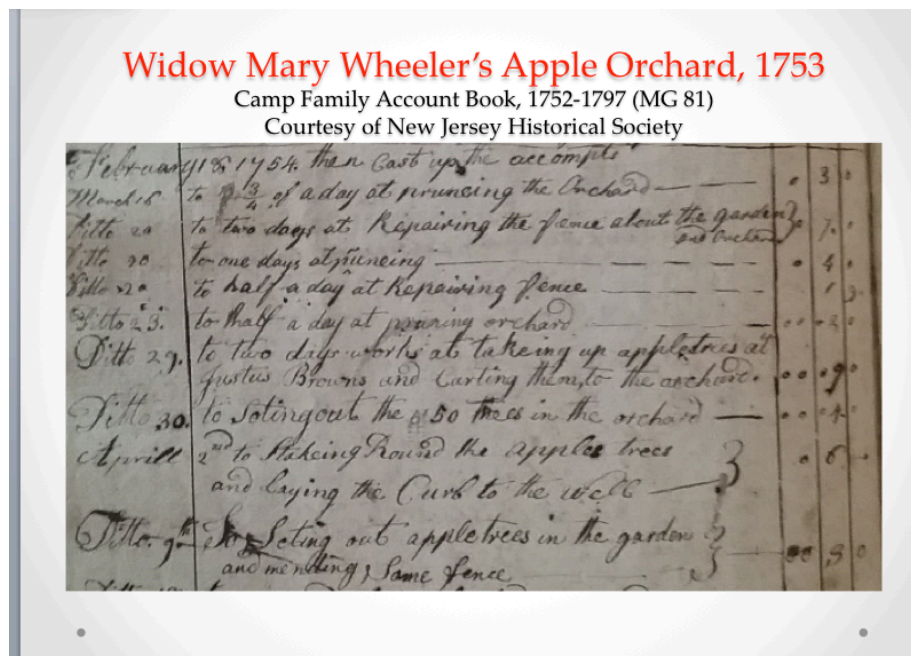 Widow Mary Wheeler's Apple Orchard, 1753
Camp Family Account Book, 1752-1797 (MG 81)
Courtesy of New Jersey Historical Society
February 18 1754 then Cast up the accompts 3
March 18 to 3/4 of a day at pruneing the Orchard
Ditto 20 to two days at Repairing the fence about the garden 7
and Orchard
Ditto 20 to one days at pruneing 4
Ditto 20 to half a day at Repairing fence
Ditto 23. to half a day at pruning orchard 2
Ditto 29. to two days works at takeing up appletrees at
Justus Browns and Carting them, to the orchard. 9
Ditto 30. to Setingout the 50 trees in the orchard 4
Aprill 2nd to Stakeing Round the apples trees 6
and laying the Curb to the well
Ditto. 9th Seting out appletrees in the garden
and mending Some fence 3